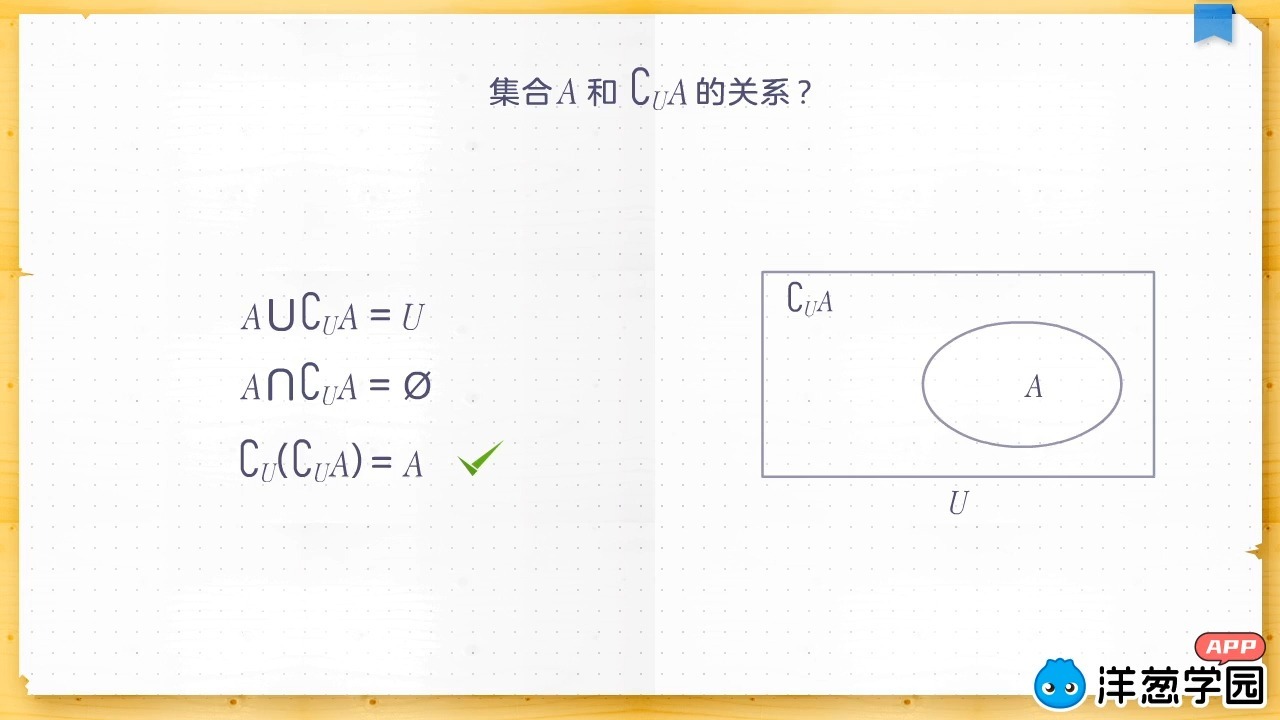 集合A 和 ∁UA 的关系？
A∪∁UA = U
A∩∁UA = ∅
∁U(∁UA) = A
∁UA
A
U
APP
洋葱学园